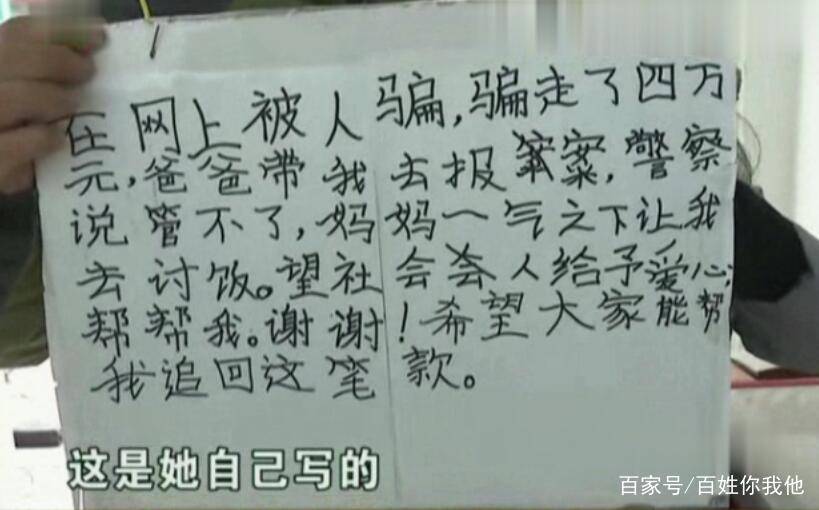 在网上被人骗,骗走了四万
元,爸爸带我去报案,警察
说管不了,妈妈一气之下让我
去讨饭。望社会人给予爱心,
帮帮我。谢谢!希望大家能帮
我追回这笔款。
这是她自己写的
百家号/百姓你我他